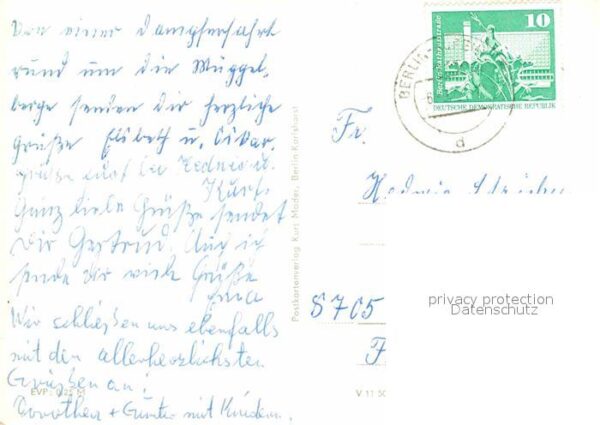 Von einer Dampferfahrt
rund um die Müggel,
berge senden dir herzliche
Grüße Elsbeth u. Oskar.
Kurt.
Ganz liebe Grüße sendet
Dir Gertrud. Auch ich
sende dir viele Grüße
Wir schließen uns ebenfalls
mit den allerherzlichsten
Grüßen an!
Dorothea + Günter mit Kindern.
EVP: 0,25 M
Postkartenverlag Kurt Mader, Berlin-Karlshorst
V 11 50
BERLIN-
d
10
Berlin, Rathausstraße
DEUTSCHE DEMOKRATISCHE REPUBLIK
Fr.
Hedwig
8705
F
privacy protection
Datenschutz